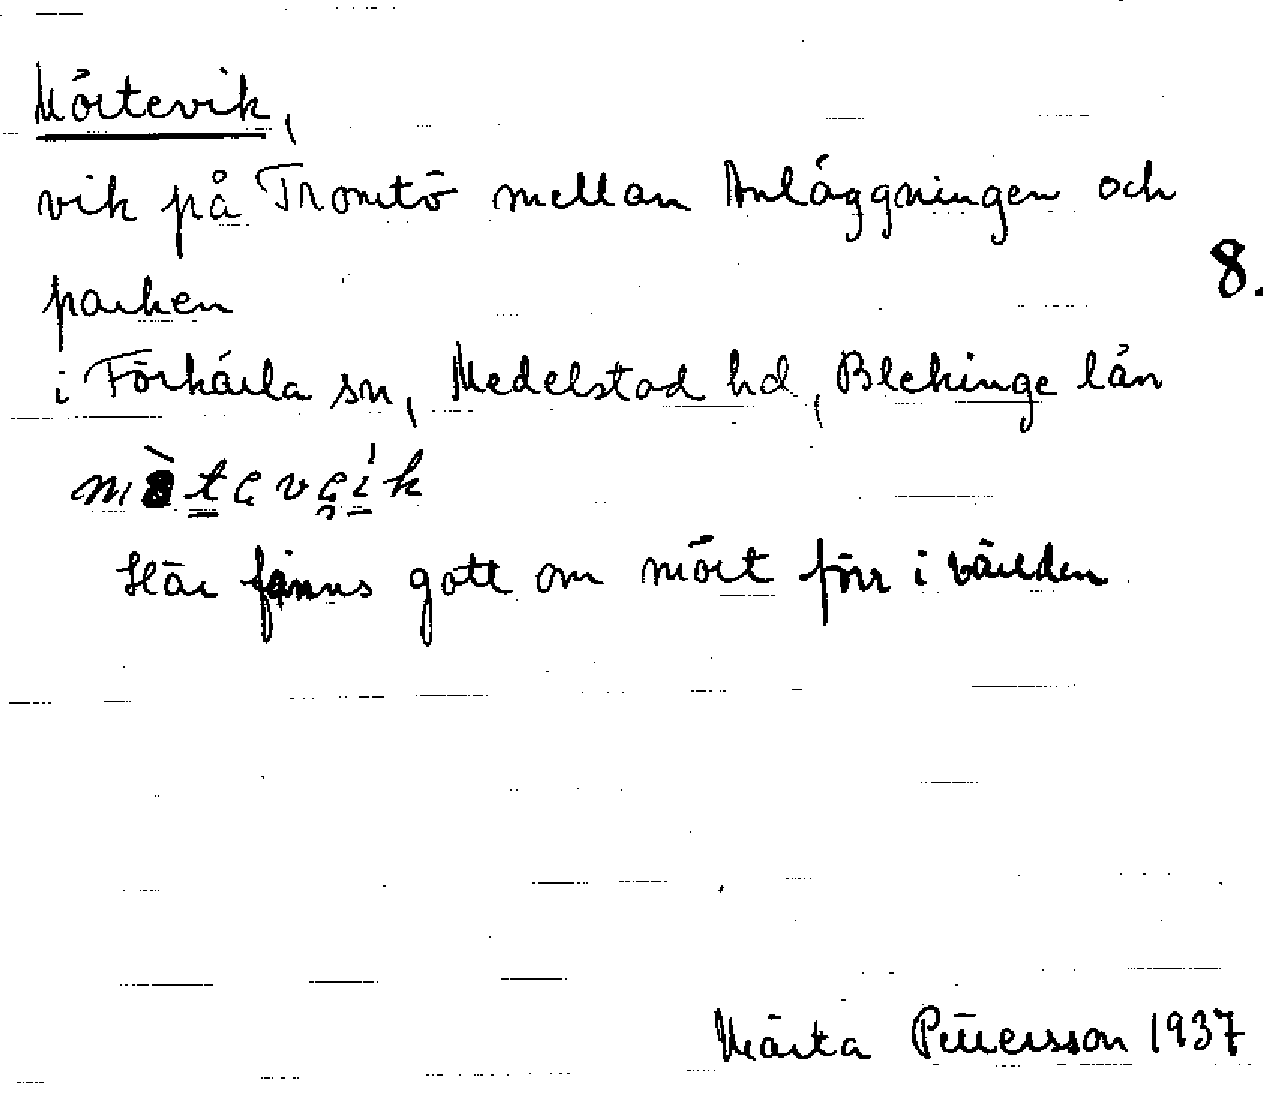 Mörtevik,
vik på Tromtö mellan Anläggningen och
parken
8.
i Förkärla sn, Medelstad hd, Blekinge län
Här fanns gott om mört förr i världen
Märta Pettersson 1937